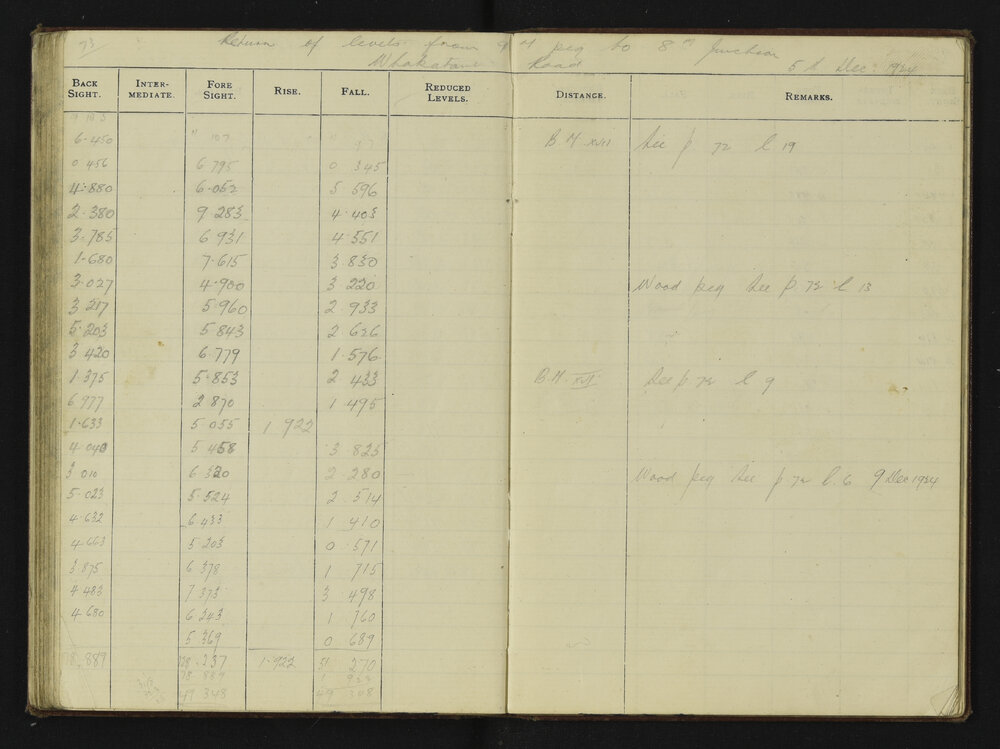 73
Return of levels from 9 4 peg to 8 m Junction
Whakatane Road 5th Dec. 1924
BACK SIGHT. INTER-MEDIATE. FORE SIGHT. RISE. FALL. REDUCED LEVELS. DISTANCE. REMARKS.
6.450 B.M. XVII See p 72 l. 19
0.456 6 795 0 345
4.880 6.052 5 596
2.380 9 283 4.403
3.785 6 931 4 551
1.680 7.615 3 830
3.027 4.900 3 220 Wood peg See p 72 l 13
3 217 5.960 2 933
5.203 5 843 2 626
3 420 6.779 1.576
1.375 5.853 2 433 B.M. XVI See p. 72 l 9
6 977 2 870 1 495
1.633 5 055 1 922
4 040 5 458 3 825
3 010 6 320 2.280 Wood peg See p 72 l. 6 9 Dec 1924
5.023 5 524 2 514
4.632 6 433 1 410
4 663 5 203 0 571
3.875 6 378 1 715
4 483 7 373 3 498
4.680 6 243 1 760
5 369 0 689
78.889 128.237 1.922 51 270
78 889 1 922
49 348 49 348